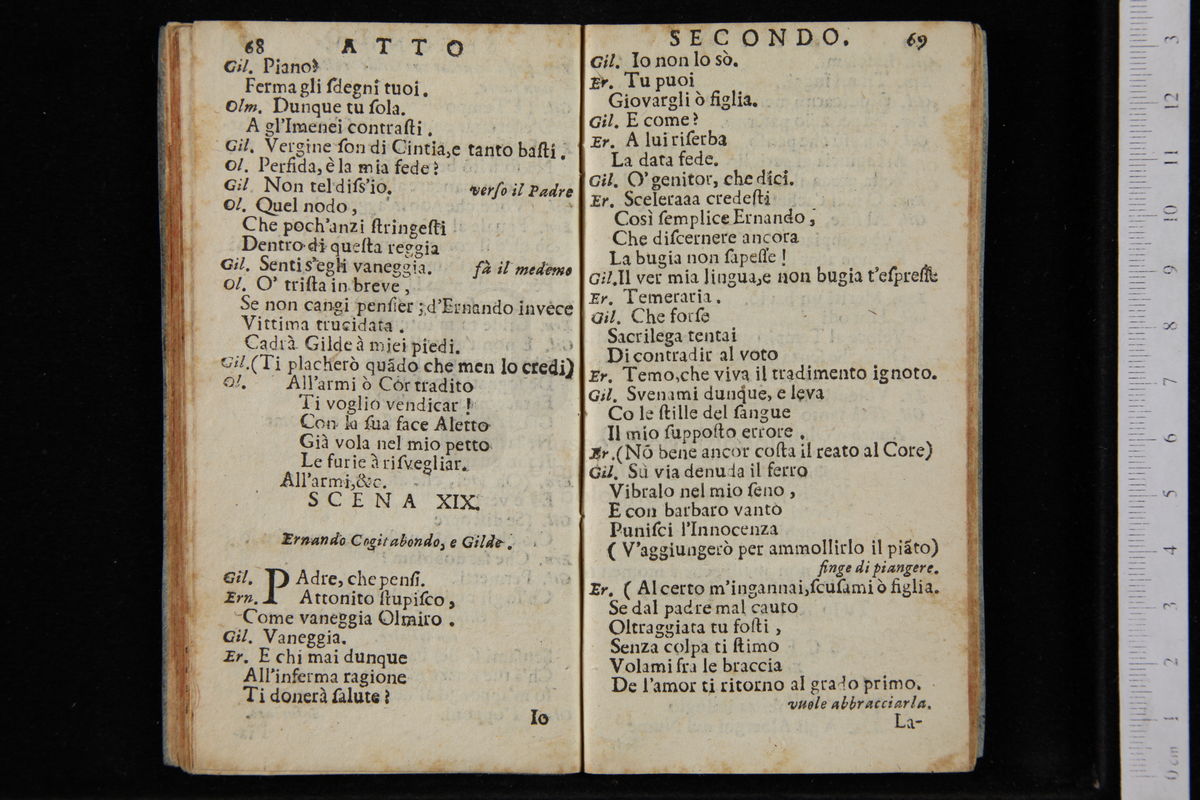 68 ATTO
Gil. Piano?
Ferma gli ſdegni tuoi.
Olm. Dunque tu ſola.
A gl'Imenei contraſti.
Gil. Vergine ſon di Cintia,e tanto baſti.
Ol. Perfida, è la mia fede?
Gil Non tel diſs'io. verſo il Padre
Ol. Quel nodo,
Che poch'anzi ſtringeſti
Dentro di queſta reggia
Gil. Senti s'egli vaneggia. fà il medemo
Ol. O' triſta in breve,
Se non cangi penſier; d'Ernando invece
Vittima trucidata.
Cadrà Gilde à miei piedi.
Gil.(Ti placherò quãdo che men lo credi)
Ol. All'armi ò Cor tradito
Ti voglio vendicar!
Con la ſua face Aletto
Già vola nel mio petto
Le furie à riſvegliar.
All'armi,&c.
SCENA XIX.
Ernando Cogitabondo, e Gilde.
Gil. PAdre, che penſi.
Ern. Attonito ſtupiſco,
Come vaneggia Olmiro.
Gil. Vaneggia.
Er. E chi mai dunque
All'inferma ragione
Ti donerà ſalute?
Io
SECONDO. 69
Gil. Io non lo sò.
Er. Tu puoi
Giovargli ò figlia.
Gil. E come?
Er. A lui riſerba
La data fede.
Gil. O' genitor, che dici.
Er. Sceleraaa credeſti
Così ſemplice Ernando,
Che diſcernere ancora
La bugia non ſapeſſe!
Gil.Il ver mia lingua,e non bugia t'eſpreſſe
Er. Temeraria.
Gil. Che forſe
Sacrilega tentai
Di contradir al voto
Er. Temo,che viva il tradimento ignoto.
Gil. Svenami dunque, e leva
Co le ſtille del ſangue
Il mio ſuppoſto errore.
Er.(Nõ bene ancor coſta il reato al Core)
Gil. Sù via denuda il ferro
Vibralo nel mio ſeno,
E con barbaro vanto
Puniſci l'Innocenza
( V'aggiungerò per ammollirlo il piãto)
finge di piangere.
Er. ( Al certo m'ingannai,ſcuſami ò figlia.
Se dal padre mal cauto
Oltraggiata tu foſti,
Senza colpa ti ſtimo
Volami frà le braccia
De l'amor ti ritorno al grado primo.
vuole abbracciarla.
La-